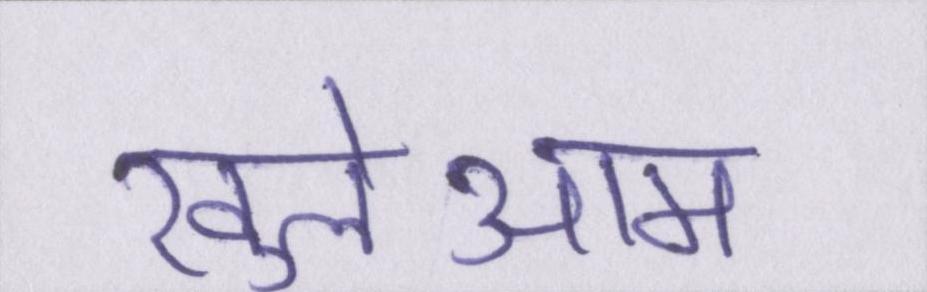 खुलेआम